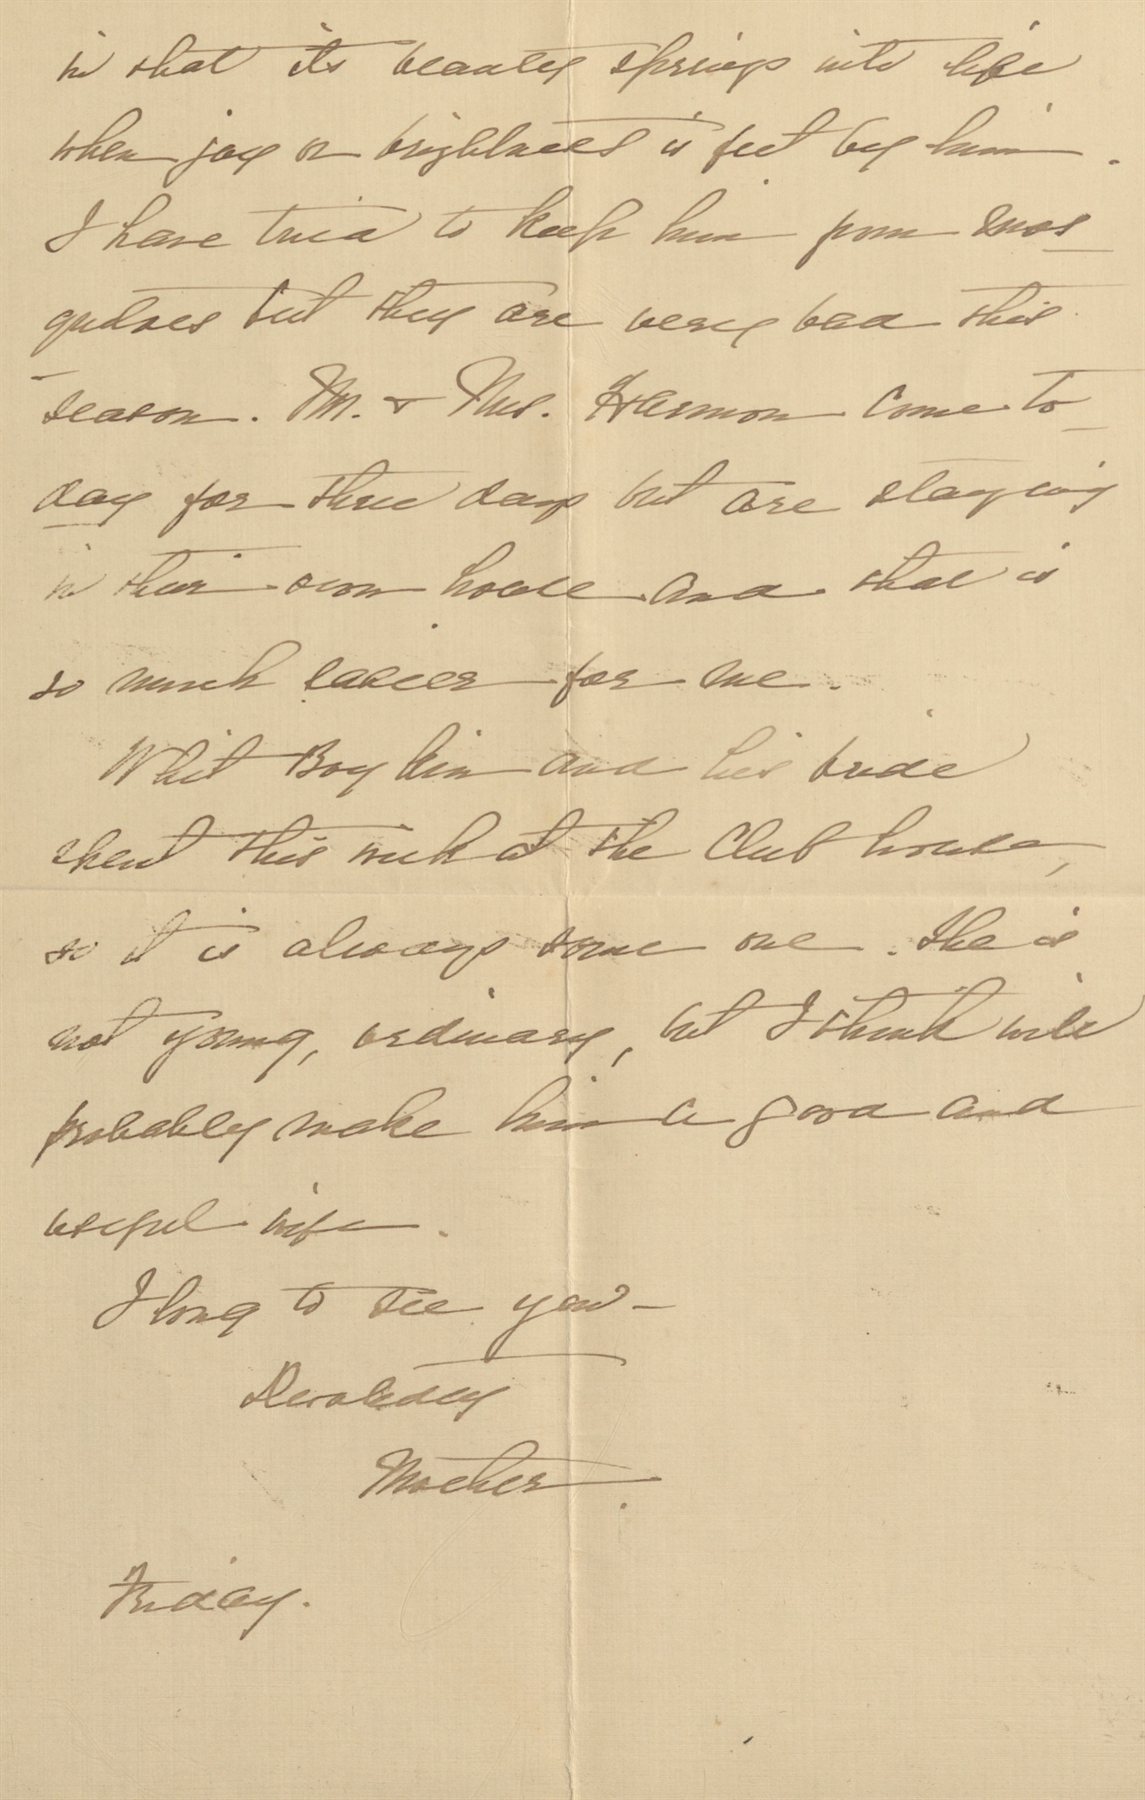 in that its beauty springs into life
when joy or brightness is felt by him.
I have tried to keep him from mos-
quitoes but they are very bad this
season. Mr. & Mrs. Harmon come to-
day for three days but are staying
in their own house and that is
so much easier for me.
Whit Boykin and his bride
spent this week at the Club house,
so it is always some one. She is
not young, ordinary, but I think will
probably make him a good and
useful wife.
I long to see you—
Devotedly
Mother.
Friday.